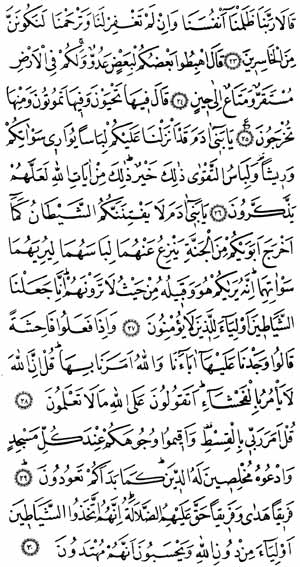 قَالَا رَبَّنَا ظَلَمْنَا اَنْفُسَنَا وَاِنْ لَمْ تَغْفِرْ لَنَا وَتَرْحَمْنَا لَنَكُونَنَّ
مِنَ الْخَاسِرِينَ ﴿٢٣﴾ قَالَ اهْبِطُوا بَعْضُكُمْ لِبَعْضٍ عَدُوٌّ وَلَكُمْ فِي الْاَرْضِ
مُسْتَقَرٌّ وَمَتَاعٌ اِلٰى حِينٍ ﴿٢٤﴾ قَالَ فِيهَا تَحْيَوْنَ وَفِيهَا تَمُوتُونَ وَمِنْهَا
تُخْرَجُونَ ﴿٢٥﴾ يَا بَنِي اٰدَمَ قَدْ اَنْزَلْنَا عَلَيْكُمْ لِبَاسًا يُوَارِي سَوْاٰتِكُمْ
وَرِيشًا وَلِبَاسُ التَّقْوٰى ذٰلِكَ خَيْرٌ ذٰلِكَ مِنْ اٰيَاتِ اللّٰهِ لَعَلَّهُمْ
يَذَّكَّرُونَ ﴿٢٦﴾ يَا بَنِي اٰدَمَ لَا يَفْتِنَنَّكُمُ الشَّيْطَانُ كَمَا
اَخْرَجَ اَبَوَيْكُمْ مِنَ الْجَنَّةِ يَنْزِعُ عَنْهُمَا لِبَاسَهُمَا لِيُرِيَهُمَا
سَوْاٰتِهِمَا اِنَّهُ يَرٰيكُمْ هُوَ وَقَبِيلُهُ مِنْ حَيْثُ لَا تَرَوْنَهُمْ اِنَّا جَعَلْنَا
الشَّيَاطِينَ اَوْلِيَاءَ لِلَّذِينَ لَا يُؤْمِنُونَ ﴿٢٧﴾ وَاِذَا فَعَلُوا فَاحِشَةً
قَالُوا وَجَدْنَا عَلَيْهَا اٰبَاءَنَا وَاللّٰهُ اَمَرَنَا بِهَا قُلْ اِنَّ اللّٰهَ
لَا يَأْمُرُ بِالْفَحْشَاءِ اَتَقُولُونَ عَلَى اللّٰهِ مَا لَا تَعْلَمُونَ ﴿٢٨﴾
قُلْ اَمَرَ رَبِّي بِالْقِسْطِ وَاَقِيمُوا وُجُوهَكُمْ عِنْدَ كُلِّ مَسْجِدٍ
وَادْعُوهُ مُخْلِصِينَ لَهُ الدِّينَ كَمَا بَدَاَكُمْ تَعُودُونَ ﴿٢٩﴾
فَرِيقًا هَدٰى وَفَرِيقًا حَقَّ عَلَيْهِمُ الضَّلَالَةُ اِنَّهُمُ اتَّخَذُوا الشَّيَاطِينَ
اَوْلِيَاءَ مِنْ دُونِ اللّٰهِ وَيَحْسَبُونَ اَنَّهُمْ مُهْتَدُونَ ﴿٣٠﴾